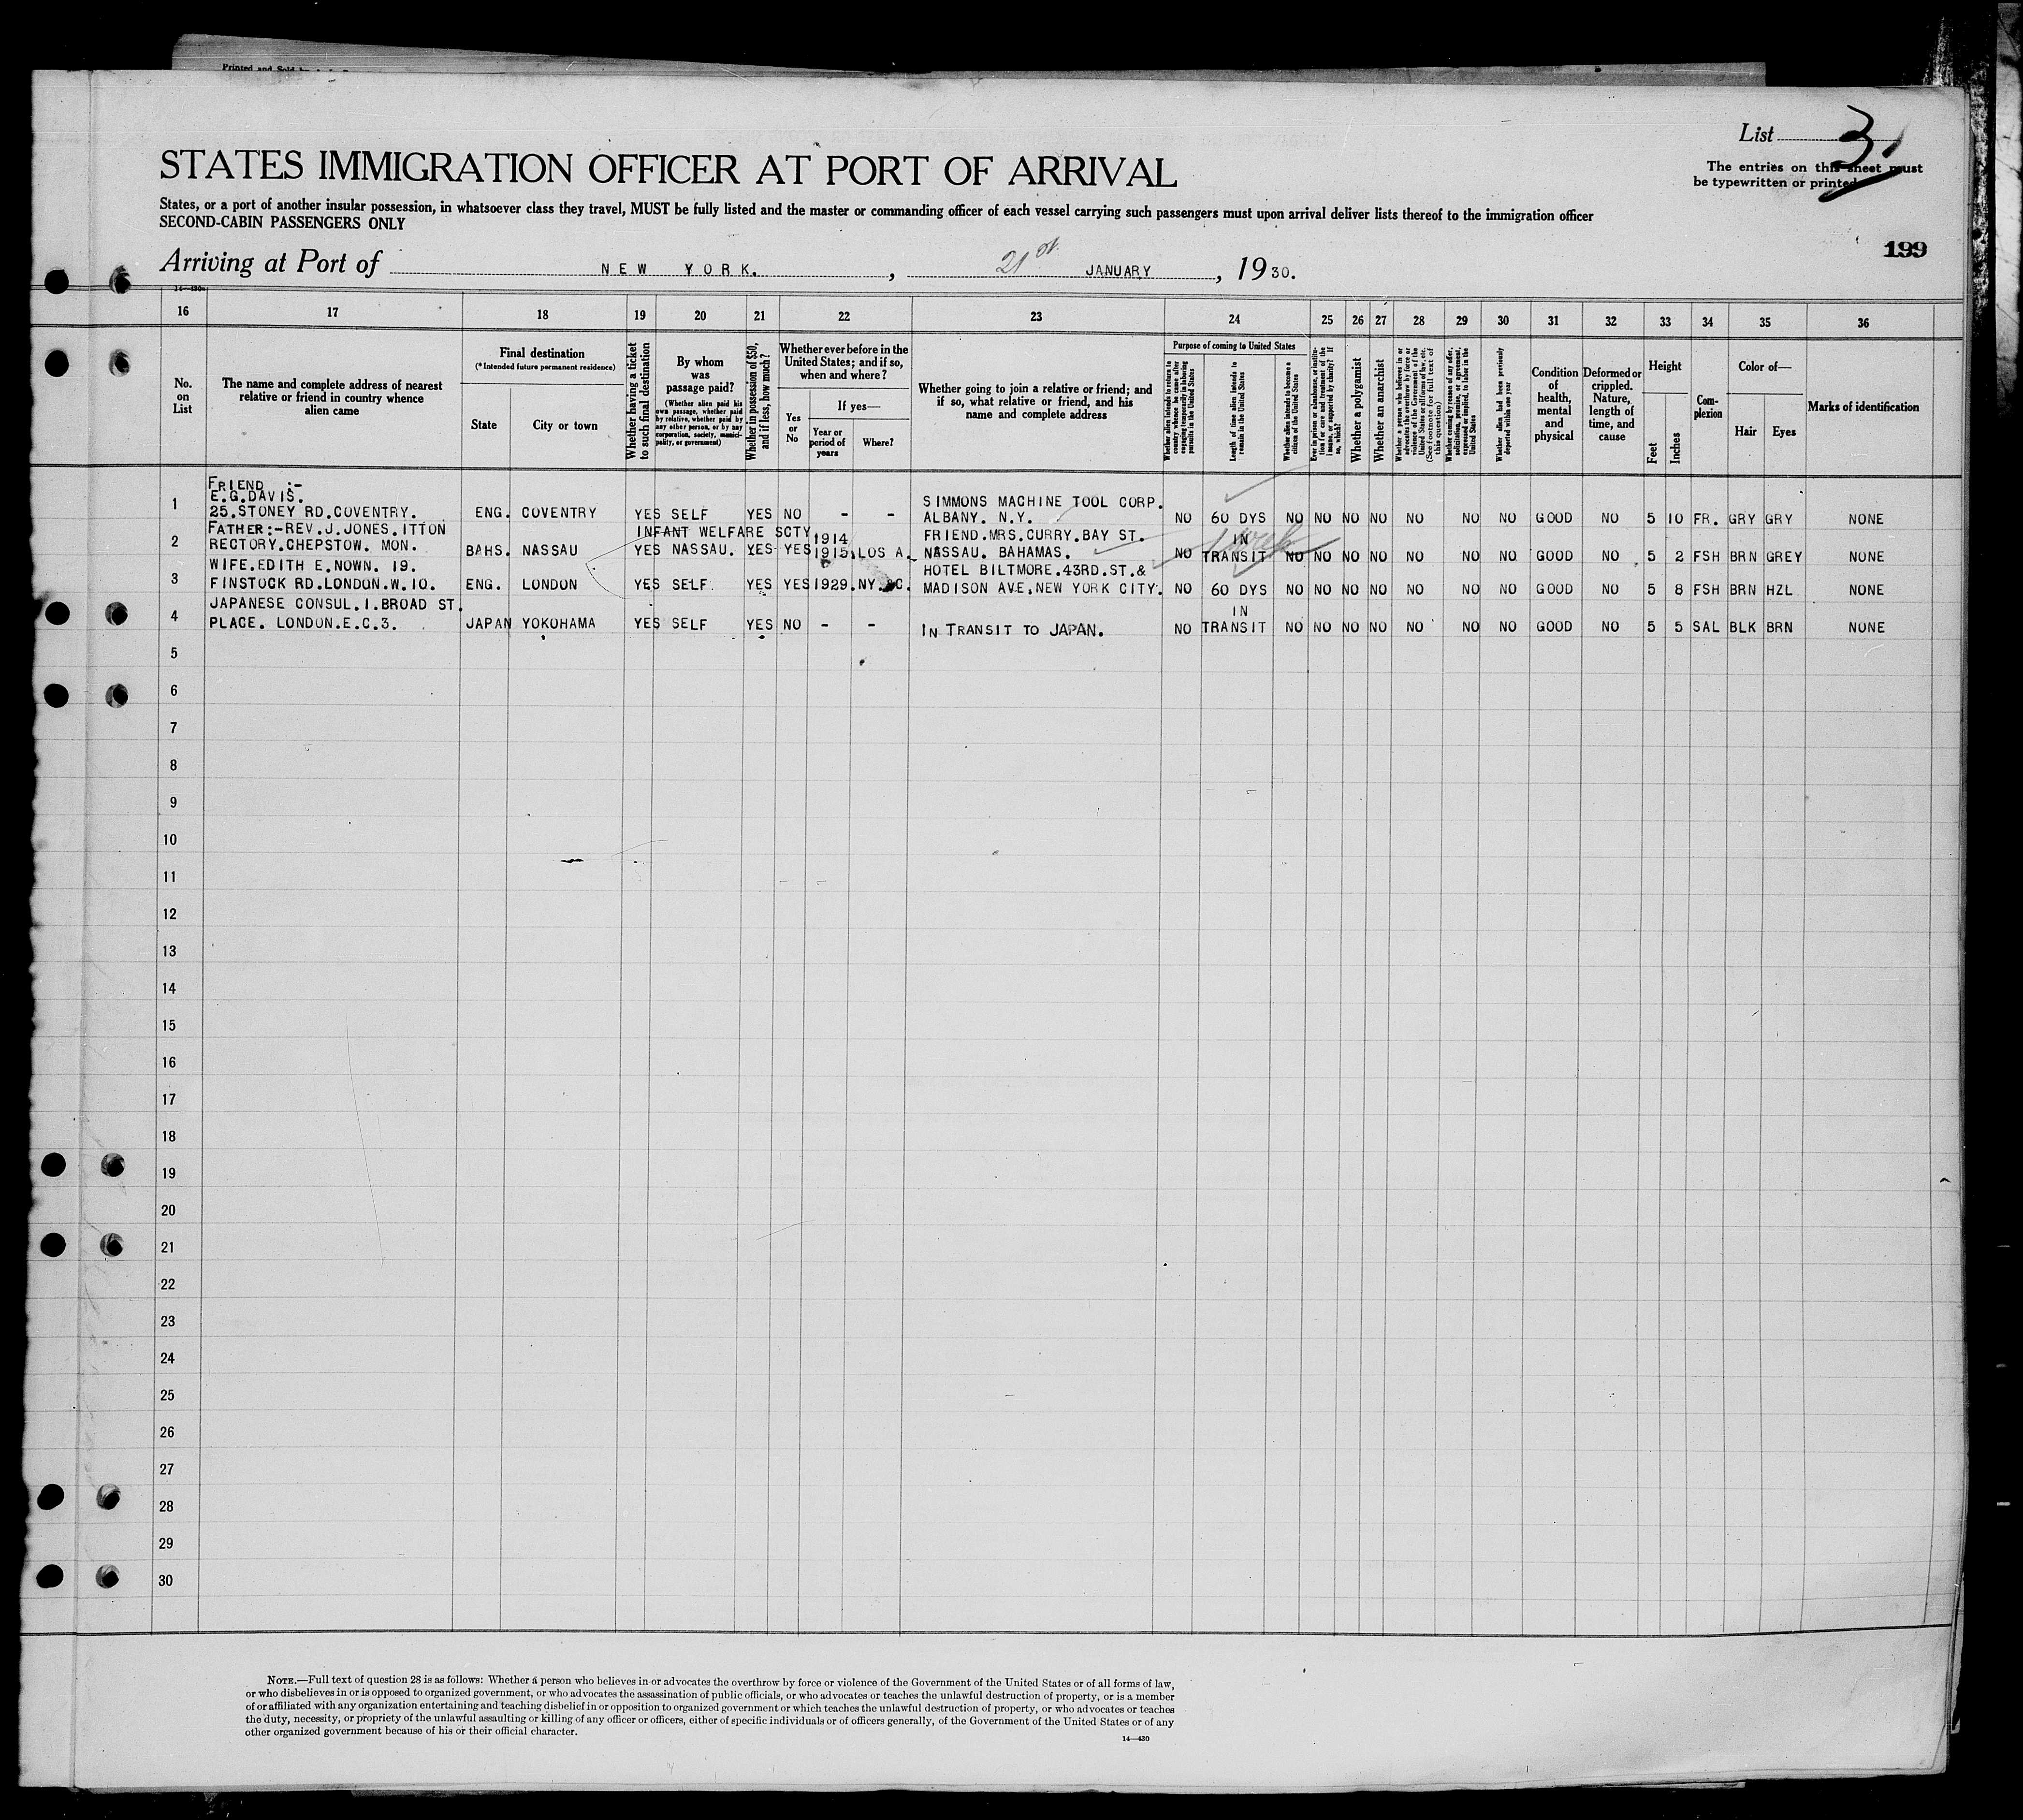 Printed and Sold by
List 3.
The entries on this sheet must
be typewritten or printed
STATES IMMIGRATION OFFICER AT PORT OF ARRIVAL
States, or a port of another insular possession, in whatsoever class they travel, MUST be fully listed and the master or commanding officer of each vessel carrying such passengers must upon arrival deliver lists thereof to the immigration officer
SECOND-CABIN PASSENGERS ONLY
199
Arriving at Port of NEW YORK. , 21st JANUARY , 1930.
14—430
16 17 18 19 20 21 22 23 24 25 26 27 28 29 30 31 32 33 34 35 36
No.
on
List
The name and complete address of nearest
relative or friend in country whence
alien came
Final destination
(*Intended future permanent residence)
State
City or town
Whether having a ticket
to such final destination
By whom
was
passage paid?
(Whether alien paid his
own passage, whether paid
by relative, whether paid by
any other person, or by any
corporation, society, munici-
pality, or government)
Whether in possession of $50,
and if less, how much?
Whether ever before in the
United States; and if so,
when and where?
Yes
or
No
If yes—
Year or
period of
years
Where?
Whether going to join a relative or friend; and
if so, what relative or friend, and his
name and complete address
Purpose of coming to United States
Whether alien intends to return to
country whence he came after
engaging temporarily in laboring
pursuits in the United States
Length of time alien intends to
remain in the United States
Whether alien intends to become a
citizen of the United States
Ever in prison or almshouse, or institu-
tion for care and treatment of the
insane, or supported by charity? If
so, which?
Whether a polygamist
Whether an anarchist
Whether a person who believes in or
advocates the overthrow by force or
violence of the Government of the
United States or all forms of law, etc.
(See footnote for full text of
this question)
Whether coming by reason of any offer,
solicitation, promise, or agreement,
expressed or implied, to labor in the
United States
Whether alien had been previously
deported within one year
Condition
of
health,
mental
and
physical
Deformed or
crippled.
Nature,
length of
time, and
cause
Height
Feet
Inches
Com-
plexion
Color of—
Hair
Eyes
Marks of identification
FRIEND :-
E.G.DAVIS. SIMMONS MACHINE TOOL CORP.
1 25.STONEY RD.COVENTRY. ENG. COVENTRY YES SELF YES NO - - ALBANY. N.Y. NO 60 DYS NO NO NO NO NO NO NO GOOD NO 5 10 FR. GRY GRY NONE
FATHER:-REV.J.JONES.ITTON INFANT WELFARE SCTY 1914 FRIEND.MRS.CURRY.BAY ST. IN 1 week
2 RECTORY.CHEPSTOW. MON. BAHS. NASSAU YES NASSAU. YES YES 1915. LOS A. NASSAU. BAHAMAS. NO TRANSIT NO NO NO NO NO NO NO GOOD NO 5 2 FSH BRN GREY NONE
WIFE.EDITH E.NOWN. 19. HOTEL BILTMORE.43RD.ST.&
3 FINSTOCK RD.LONDON.W.10. ENG. LONDON YES SELF. YES YES 1929. NY. C. MADISON AVE.NEW YORK CITY. NO 60 DYS NO NO NO NO NO NO NO GOOD NO 5 8 FSH BRN HZL NONE
JAPANESE CONSUL.1.BROAD ST. IN
4 PLACE. LONDON.E.C.3. JAPAN YOKOHAMA YES SELF YES NO - - IN TRANSIT TO JAPAN. NO TRANSIT NO NO NO NO NO NO NO GOOD NO 5 5 SAL BLK BRN NONE
5
6
7
8
9
10
11
12
13
14
15
16
17
18
19
20
21
22
23
24
25
26
27
28
29
30
NOTE.—Full text of question 28 is as follows: Whether a person who believes in or advocates the overthrow by force or violence of the Government of the United States or of all forms of law,
or who disbelieves in or is opposed to organized government, or who advocates the assassination of public officials, or who advocates or teaches the unlawful destruction of property, or is a member
of or affiliated with any organization entertaining and teaching disbelief in or opposition to organized government or which teaches the unlawful destruction of property, or who advocates or teaches
the duty, necessity, or propriety of the unlawful assaulting or killing of any officer or officers, either of specific individuals or of officers generally, of the Government of the United States or of any
other organized government because of his or their official character.
14—430